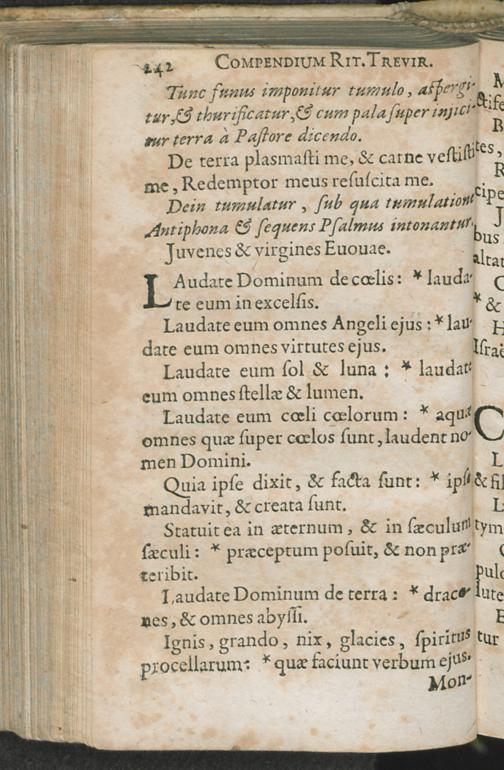 242 COMPENDIUM RIT. TREVIR.
Tunc funus imponitur tumulo, aſpergi-
tur, & thurificatur, & cum pala ſuper injici-
tur terra à Paſtore dicendo.
De terra plasmaſti me, & carne veſtiſti
me, Redemptor meus reſuſcita me.
Dein tumulatur, ſub qua tumulatione
Antiphona & ſequens Pſalmus intonantur.
Juvenes & virgines Euouae.
LAudate Dominum de cœlis: * lauda-
te eum in excelſis.
Laudate eum omnes Angeli ejus: * lau-
date eum omnes virtutes ejus.
Laudate eum ſol & luna: * laudate
eum omnes ſtellæ & lumen.
Laudate eum cœli cœlorum: * aquæ
omnes quæ ſuper cœlos ſunt, laudent no-
men Domini.
Quia ipſe dixit, & facta ſunt: * ipſe
mandavit, & creata ſunt.
Statuit ea in æternum, & in ſæculum
ſæculi: * præceptum poſuit, & non præ-
teribit.
Laudate Dominum de terra: * draco-
nes, & omnes abyſſi.
Ignis, grando, nix, glacies, ſpiritus
procellarum: * quæ faciunt verbum ejus.
Mon-